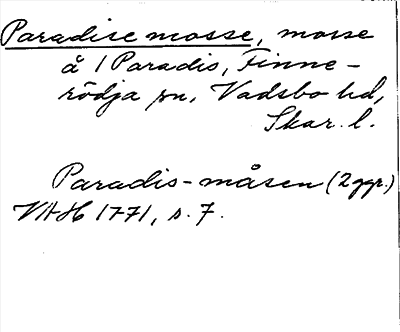 Paradise mosse, mosse
å 1 Paradis, Finne-
rödja sn, Vadsbo hd,
Skar. l.
Paradis-måsen (2 ggr.)
VAH 1771, s. 7.